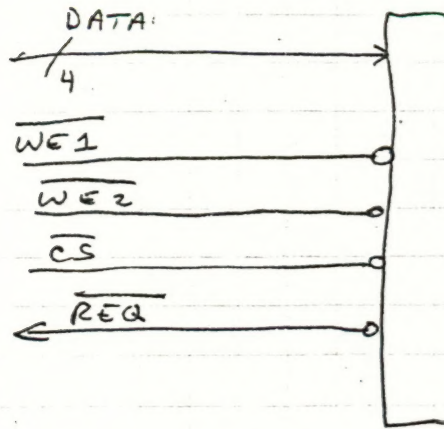 DATA:
4
W̅E̅1̅
W̅E̅2̅
C̅S̅
R̅E̅Q̅